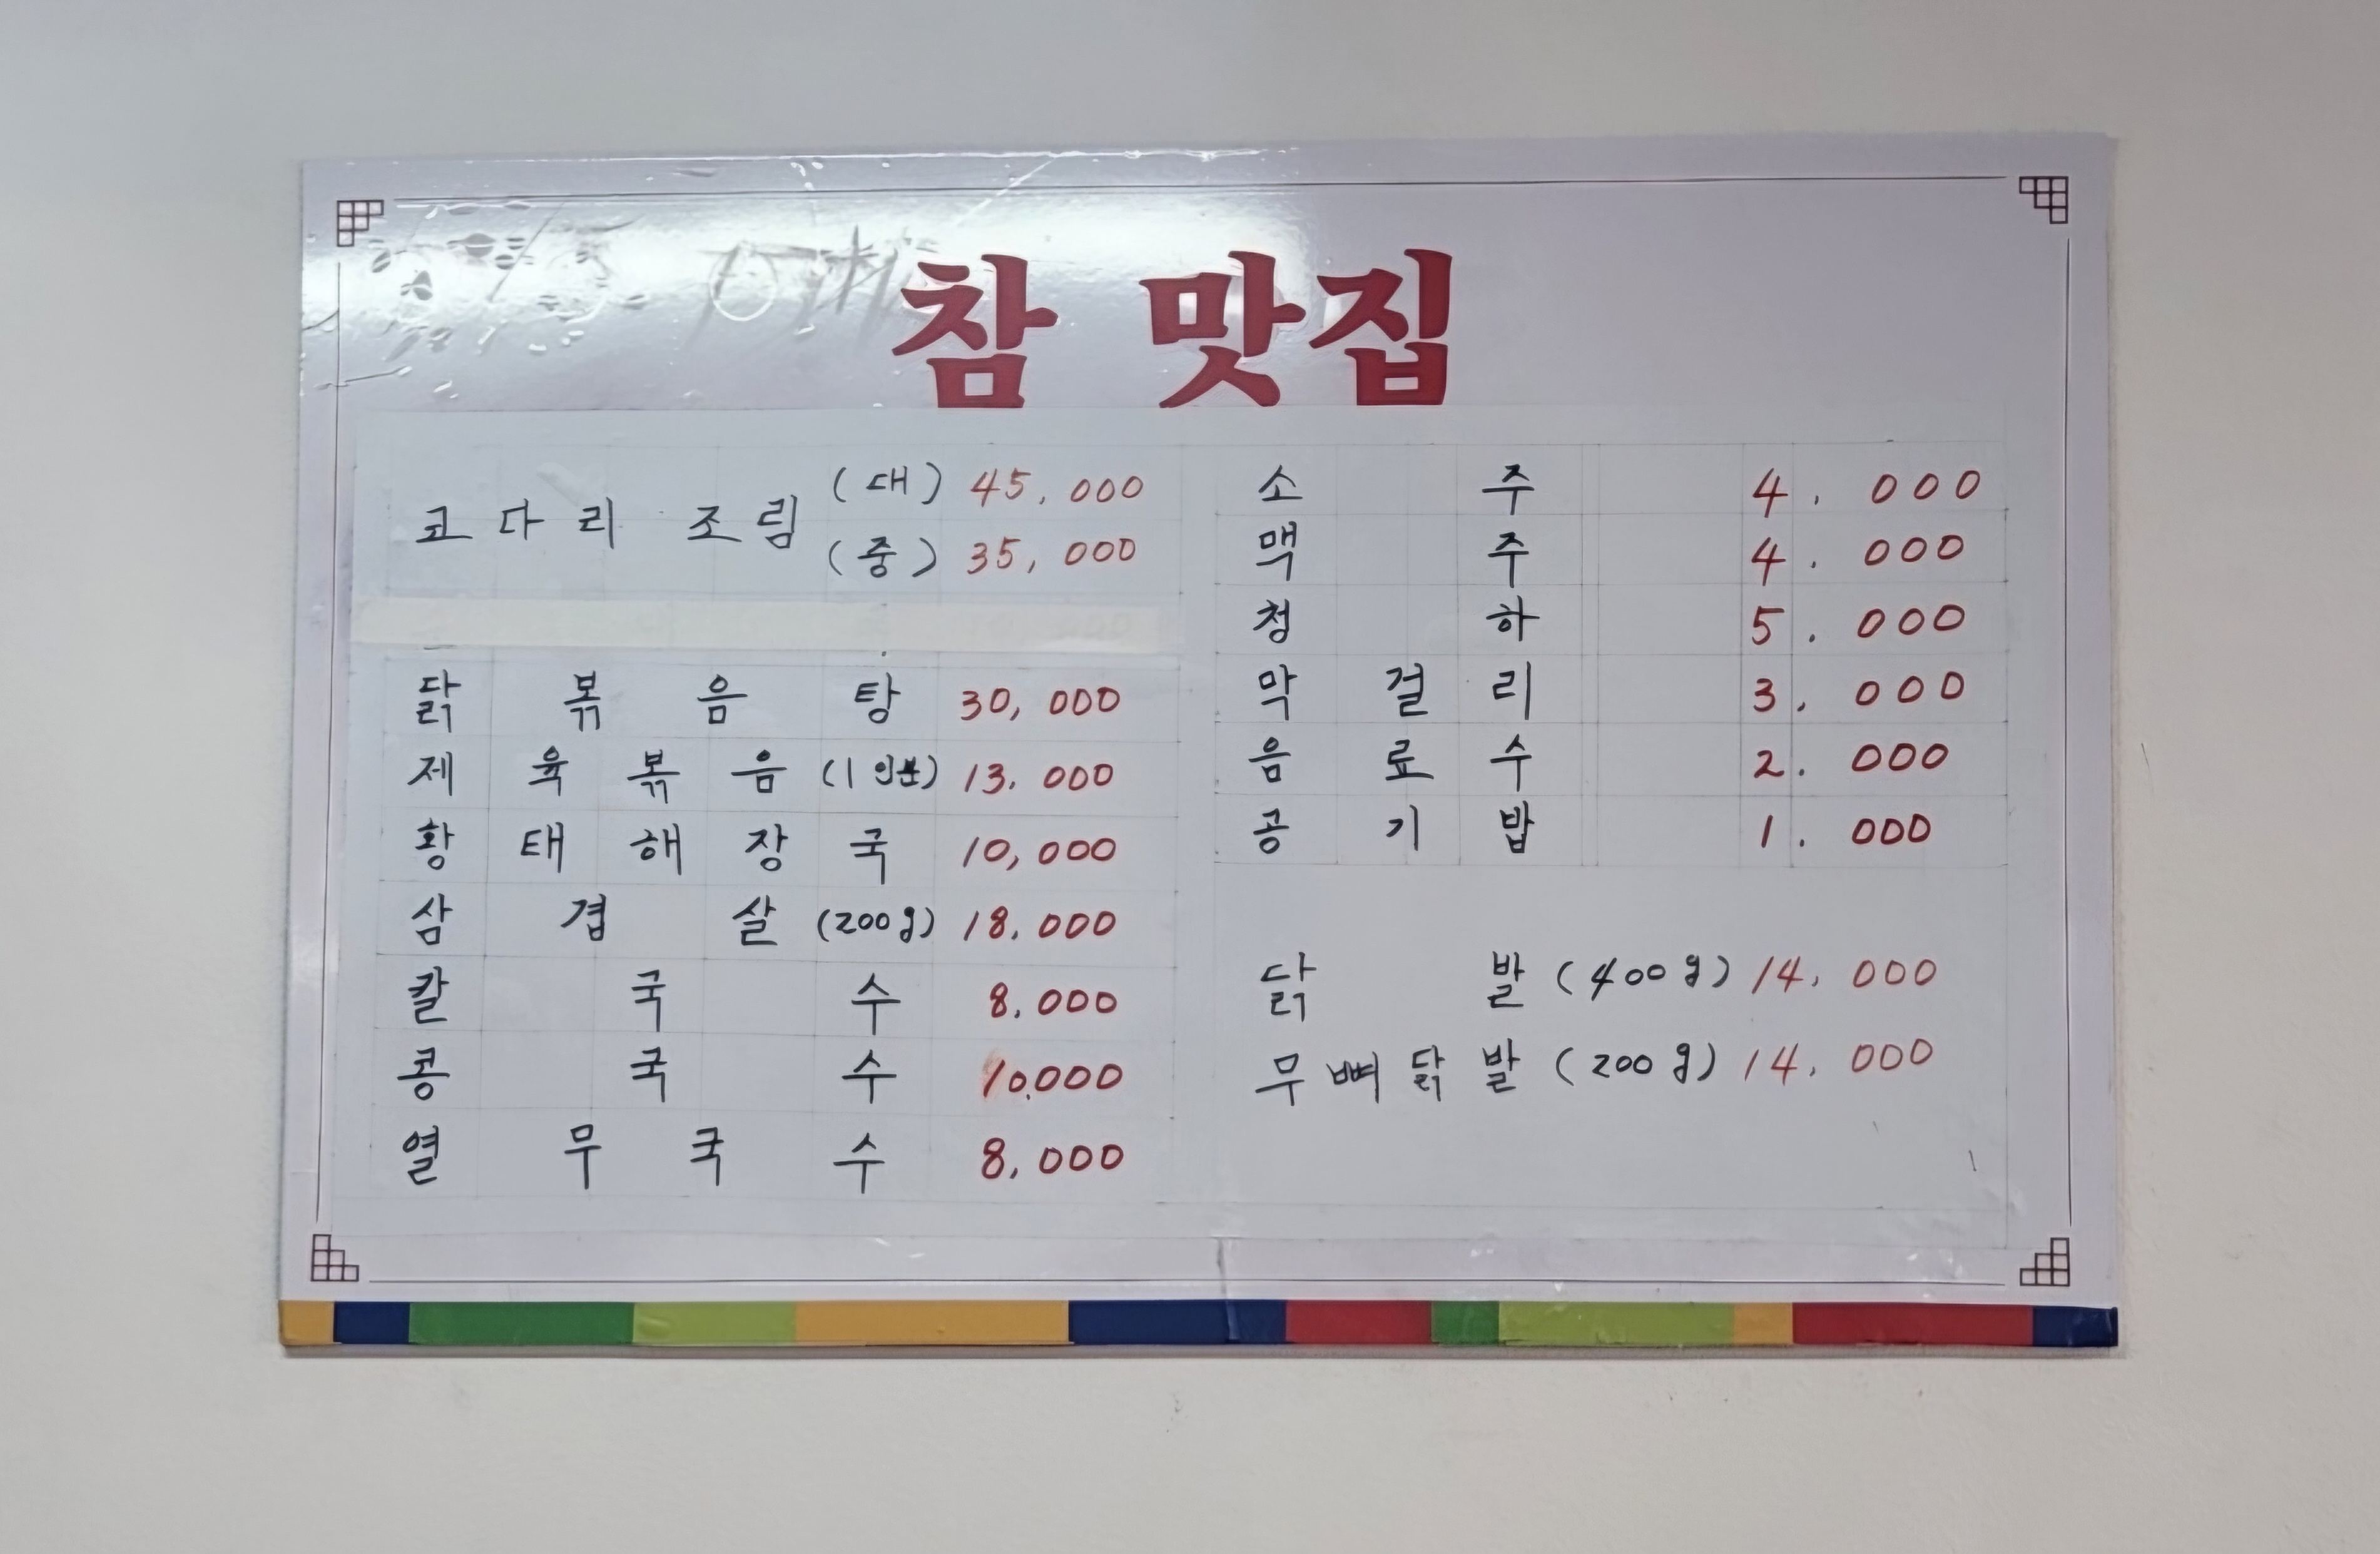 참 맛집
코다리 조림 (대) 45,000
(중) 35,000
닭볶음탕 30,000
제육볶음 (1인분) 13.000
황태해장국 10,000
삼겹살 (200g) 18.000
칼국수 8.000
콩국수 10.000
열무국수 8,000
소주 4.000
맥주 4.000
청하 5.000
막걸리 3.000
음료수 2.000
공기밥 1.000
닭발 (400g) 14,000
무뼈닭발 (200g) 14,000